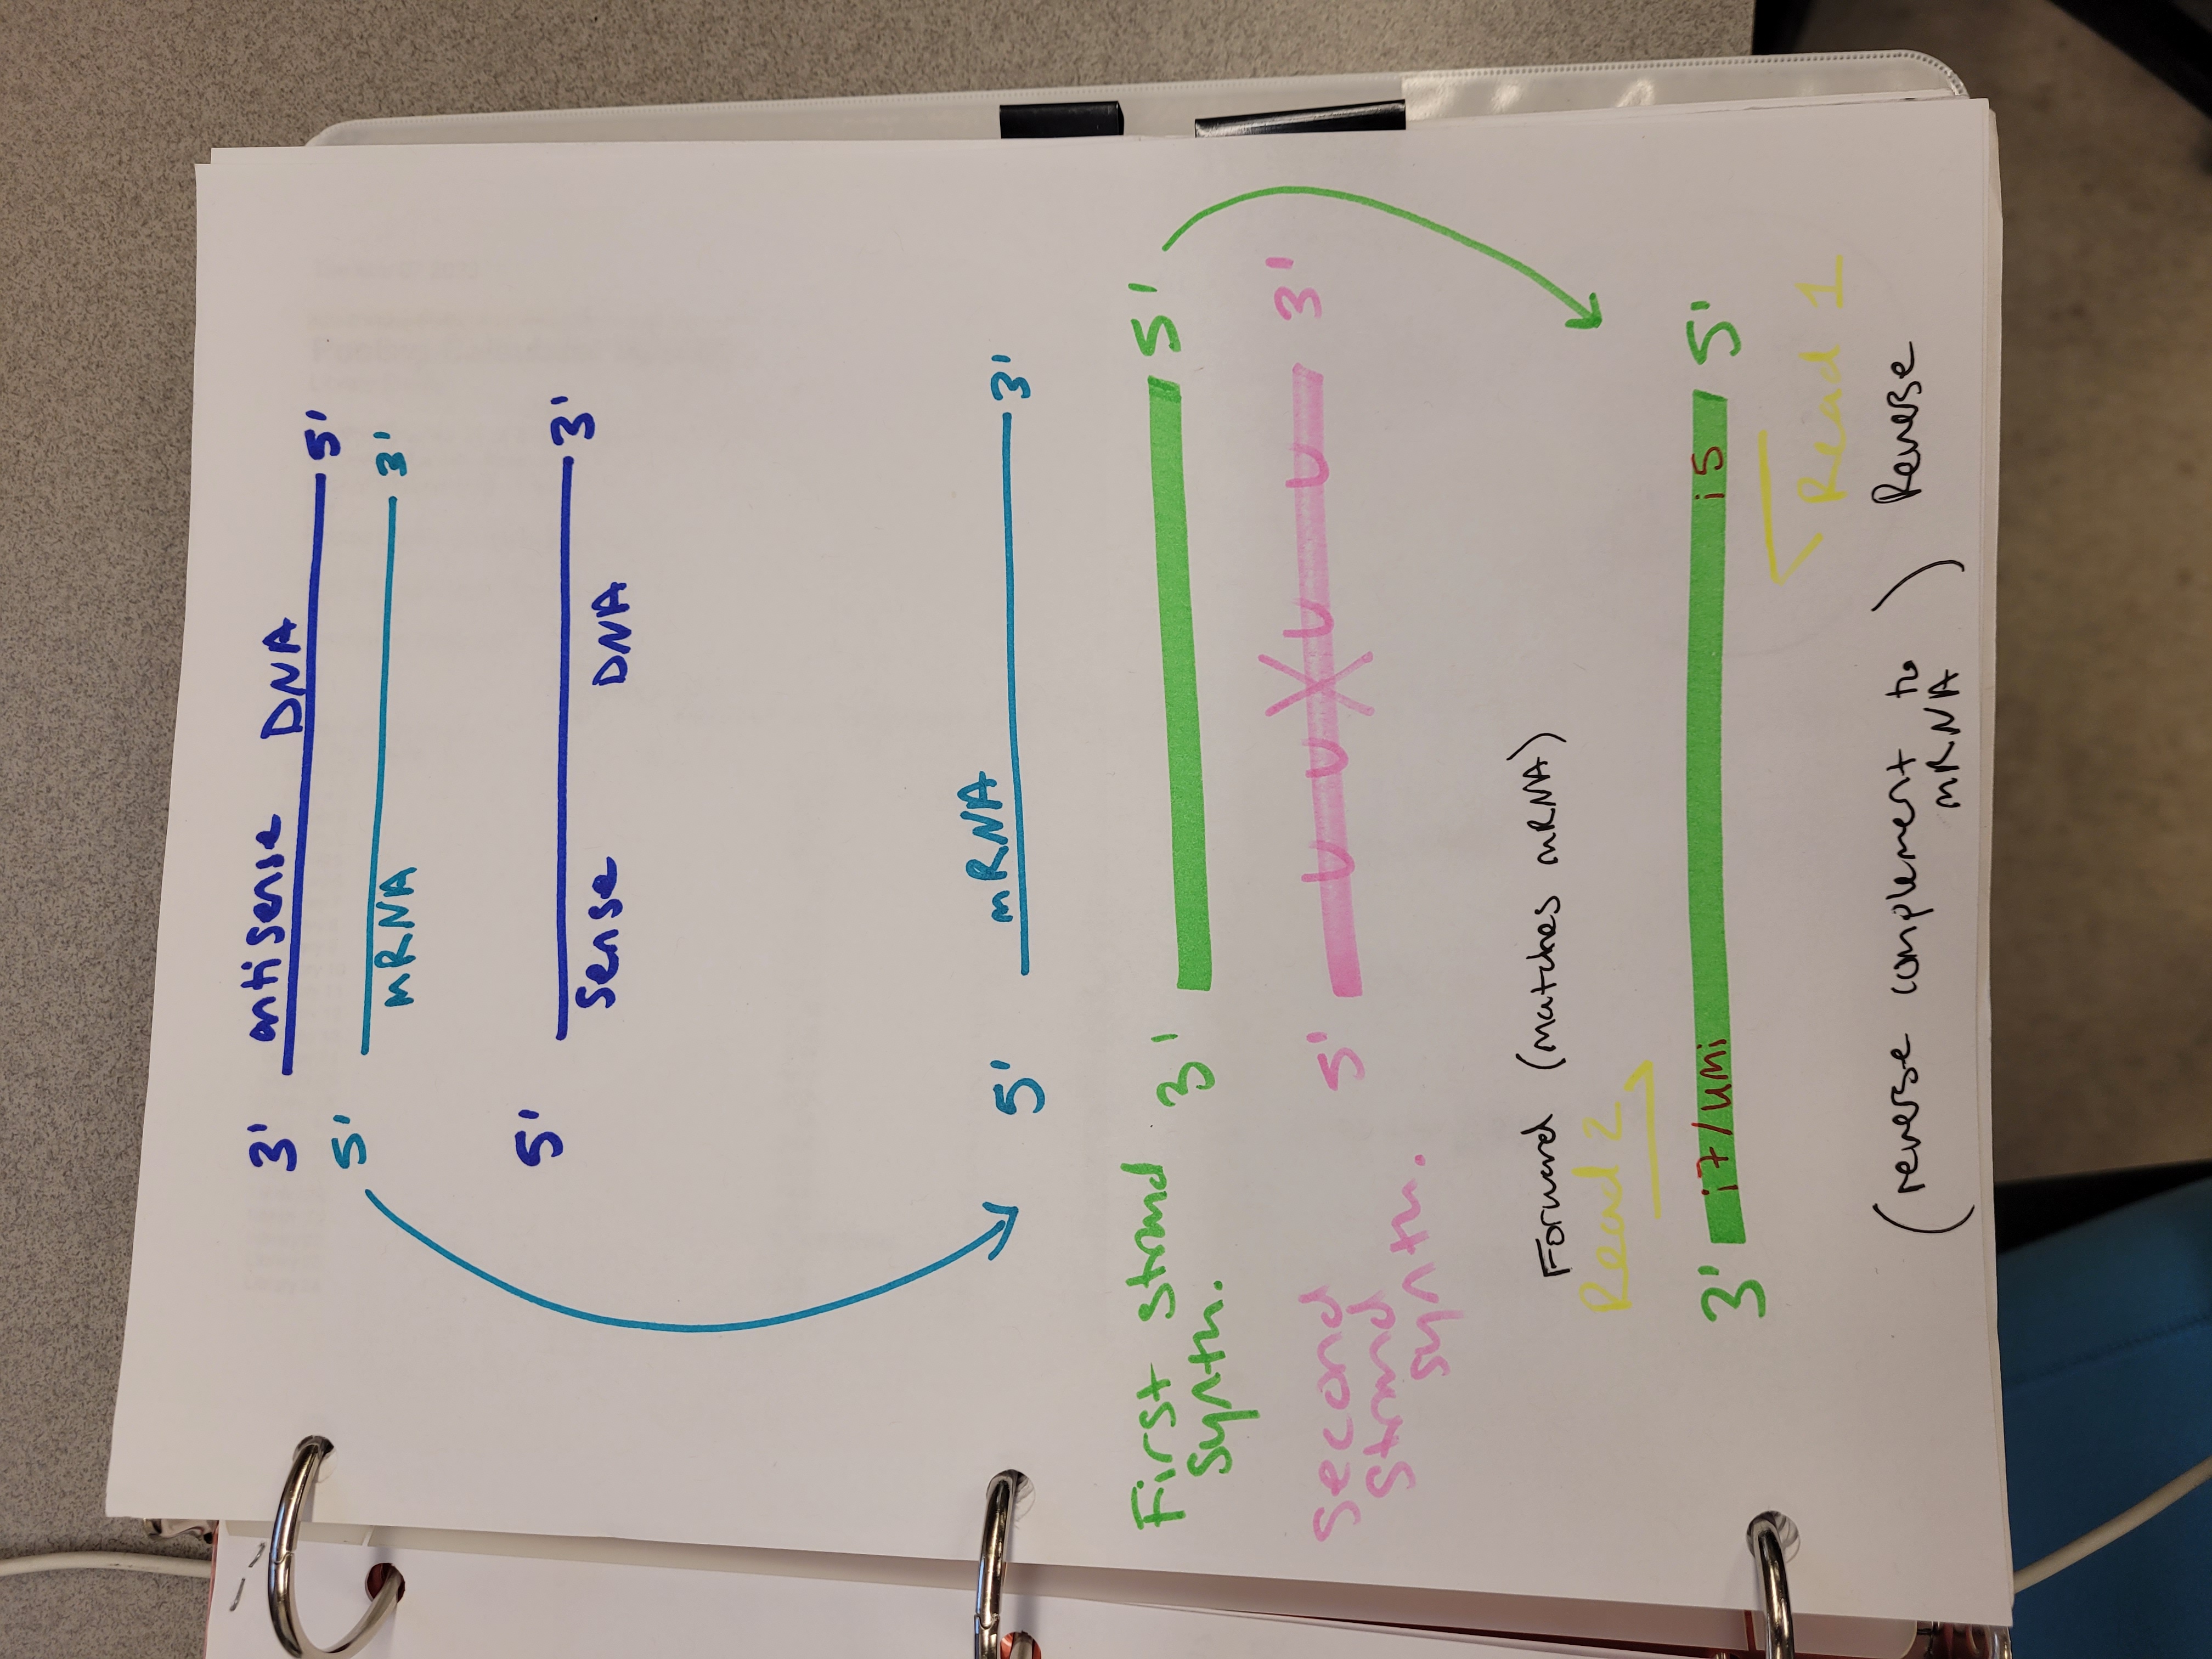 3' antisense DNA 5'
5' mRNA 3'
5' 3'
sense DNA
5' mRNA 3'
First strand
synth.
3' 5'
U U X U U
5' 3'
Second
strand
synth.
Forward (matches mRNA)
Read 2
3' i7/UMi i5 5'
Read 1
(reverse complement to
mRNA) Reverse